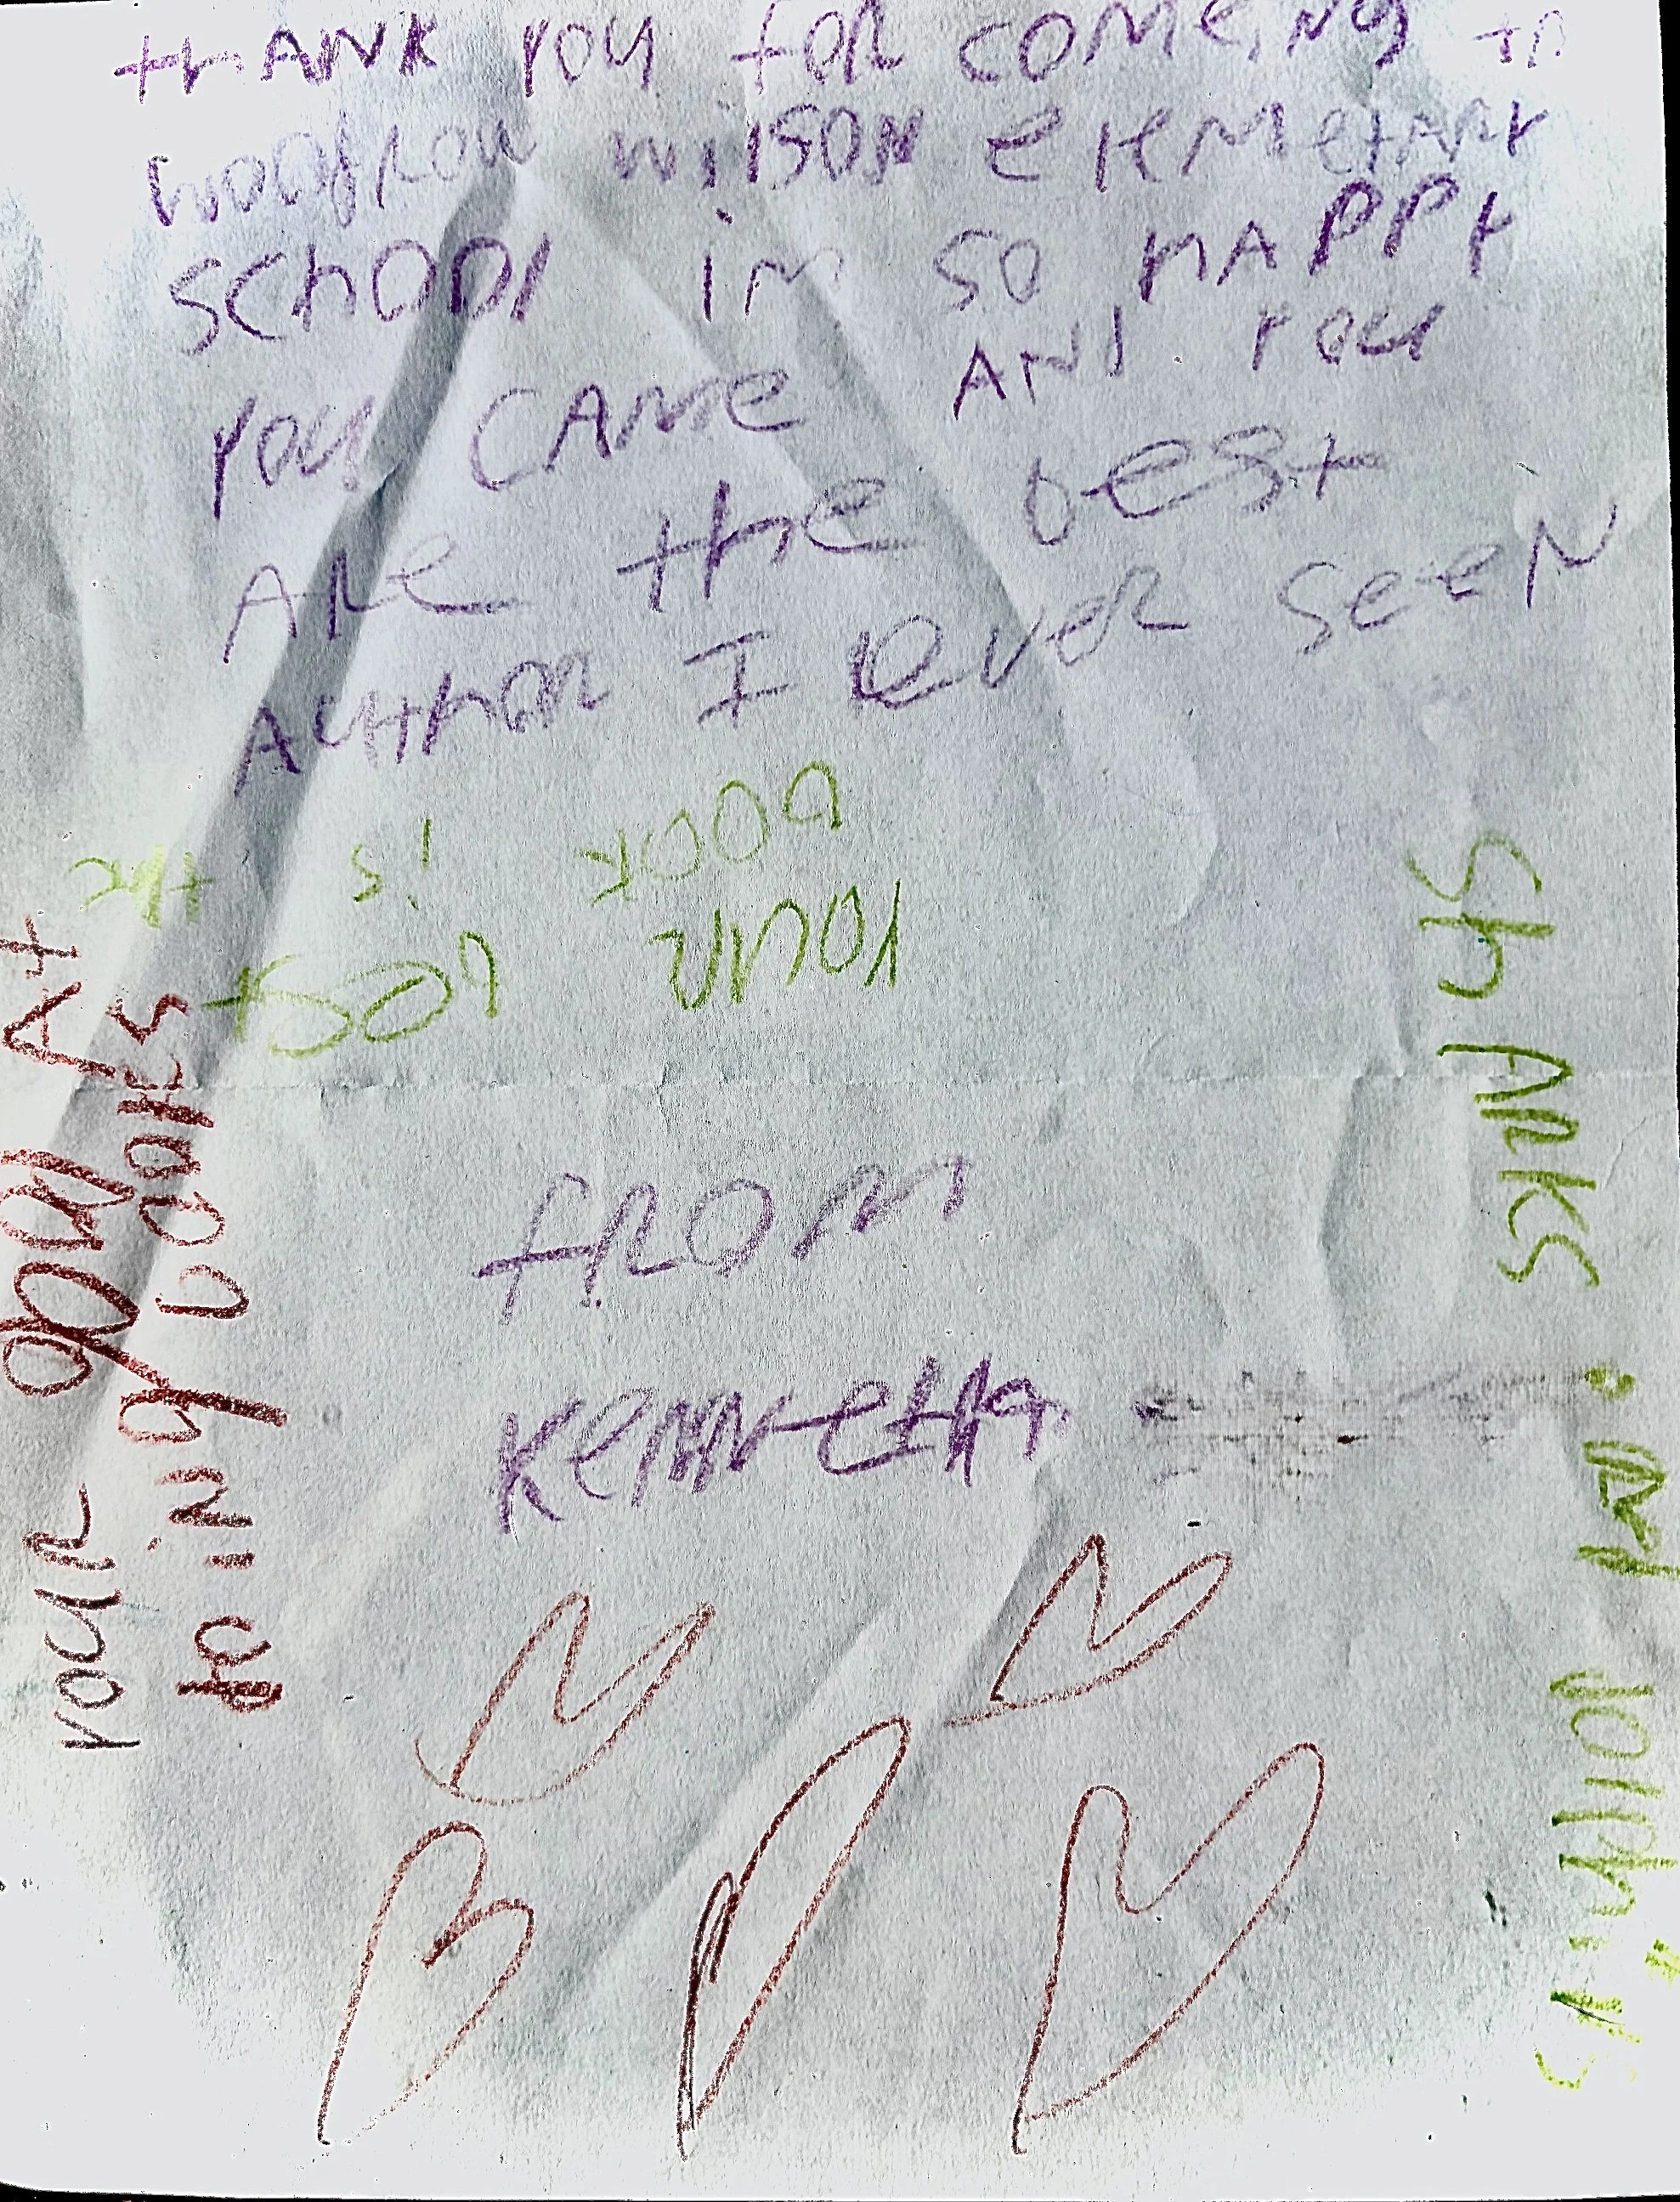 thANK you for comeiNg to
woodrow wilson elemetary
School im so hAPPY
you CAme ANd you
Are the best
Author I ever seen
your
book is the
best
from
Kenneth
your good At
doing books
ShARKS
And dolphins